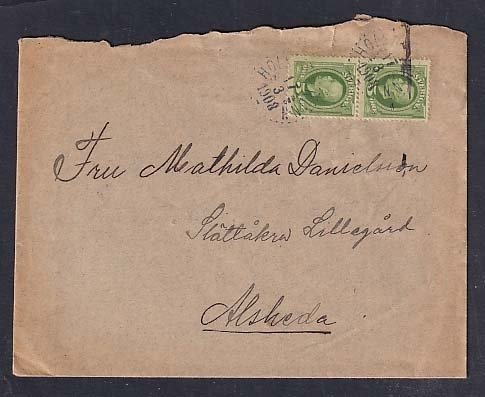 Fru Mathilda Danielsson
Slättåkra Lillegård
Alsheda